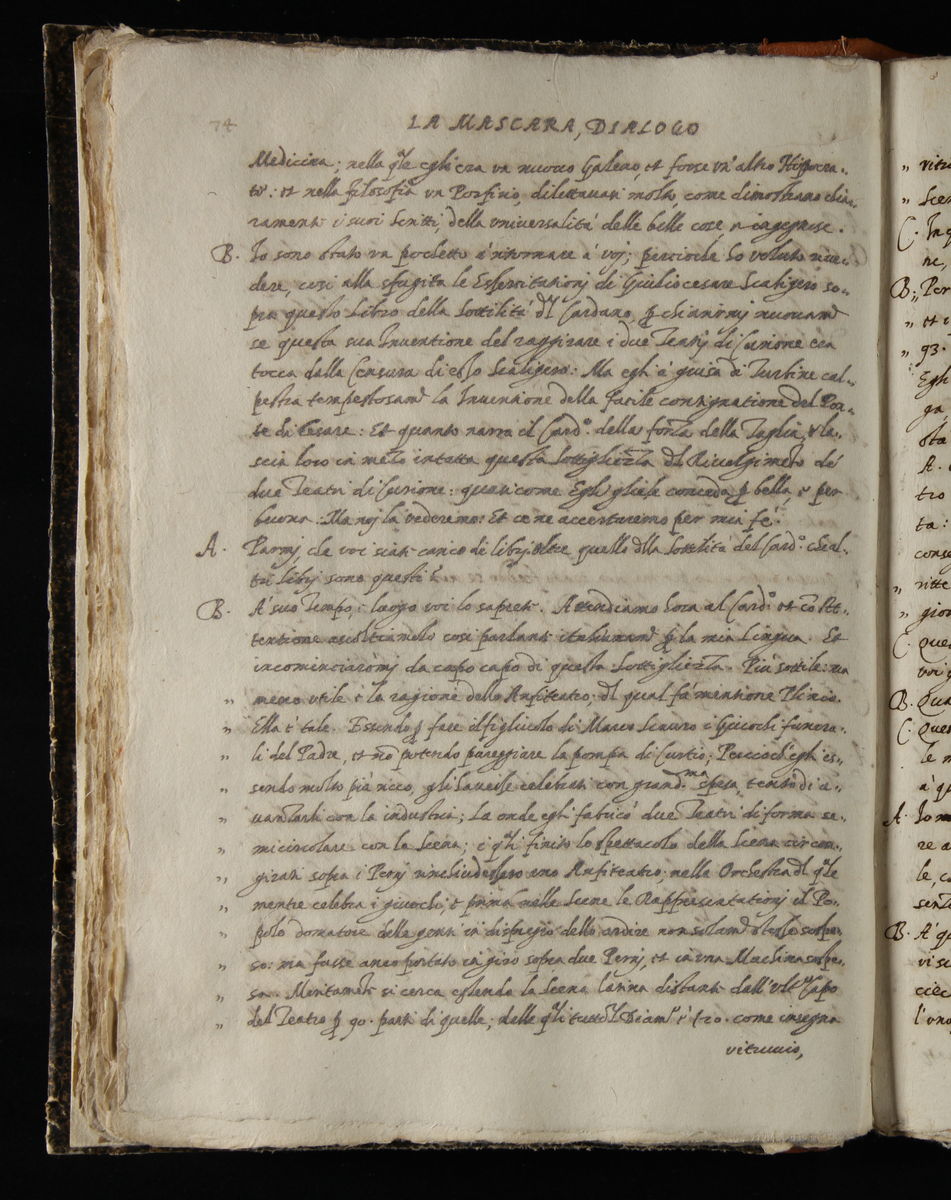 74
LA MASCARA, DIALOGO
Medicina; nella qle egli era un nuovo Galeno, et forse un'altro Hippocra-
te: et nella filosofia un Porfirio, dilettavasi molto, come dimostrano chia-
ramente i suoi scritti, della universalità delle belle cose, n ingegnose.
B. Io sono stato un pochetto à ritornare à voi; percioche ho voluto rive-
dere, così alla sfugita le Essercitationj di Giuliocesare Scaligero so-
pra questo libro della sottilità dl Cardano, p chiarirmj nuovamte
se questa sua Inventione del raggirare i due Teatrj di Curione era
tocca dalla Censura di esso Scaligero: Ma egli à guisa di Turbine cal-
pestra tempestosamte la Inventione della facile consignatione del Pon-
te di Cesare: Et quanto narra il Cardo. della forza della Taglia, & la-
scia loro in mezo intatta questa sottigliezza dl Rivolgimeto de'
due Teatri di Curione: quasi come Egli gliele conceda p bella, e per
buona. Ma noj la vederemo: Et ce ne accertaremo per mia fe'.
A. Parmj che voi siate carico di librj. Oltre quello dlla sottilità del Cardo. chi al-
tri librj sono questi?
B. A' suo Tempo, e luogo voi lo saprete. Attendiamo hora al Cardo. et cō At-
tentione ascoltiamolo così parlante italianamte p la mia lingua. Et
incominciaromj da capo capo di questa sottigliezza. Più sottile: ma
„ meno utile è la ragione dello Anfiteatro; dl qual fà mentione Plinio.
„ Ella è tale. Essendo p fare il figliuolo di Marco Scauro i Giuochi funera-
„ li del Padre, et nō potendo pareggiare la pompa di Curtio; Percioch'egli es-
„ sendo molto più ricco, gli havesse celebrati con grandma spesa, tentò di a-
„ vantarsi con la industria; La onde egli fabricò due Teatri di forma se-
„ micircolare con la scena; i qli finito lo spettacolo della scena circon-
„ girati sopra i Pernj rinchiudessero uno Anfiteatro: nella Orchestra dl qle
„ mentre celebra i giuochi, e prima nelle scene le Rappresentationj il Po-
„ polo domatore delle genti in dispregio dello ardire non solamte stesse sospe-
„ so: ma fusse anco portato in giro sopra due Pernj, et in una Machina sospe-
„ sa. Meritamte si cerca essendo la scena lontana distante dall'ultmo Capo
„ del Teatro p 90. parti di quelle; delle qli tutto'l Diamo. è 120. come insegna
vitruvio,